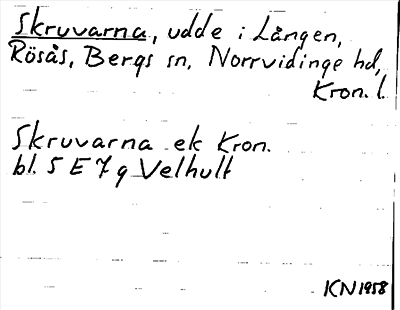 Skruvarna, udde i Lången,
Rösås, Bergs sn, Norrvidinge hd,
Kron. l.
Skruvarna ek Kron.
bl. 5 E 7 g Velhult
KN 1958